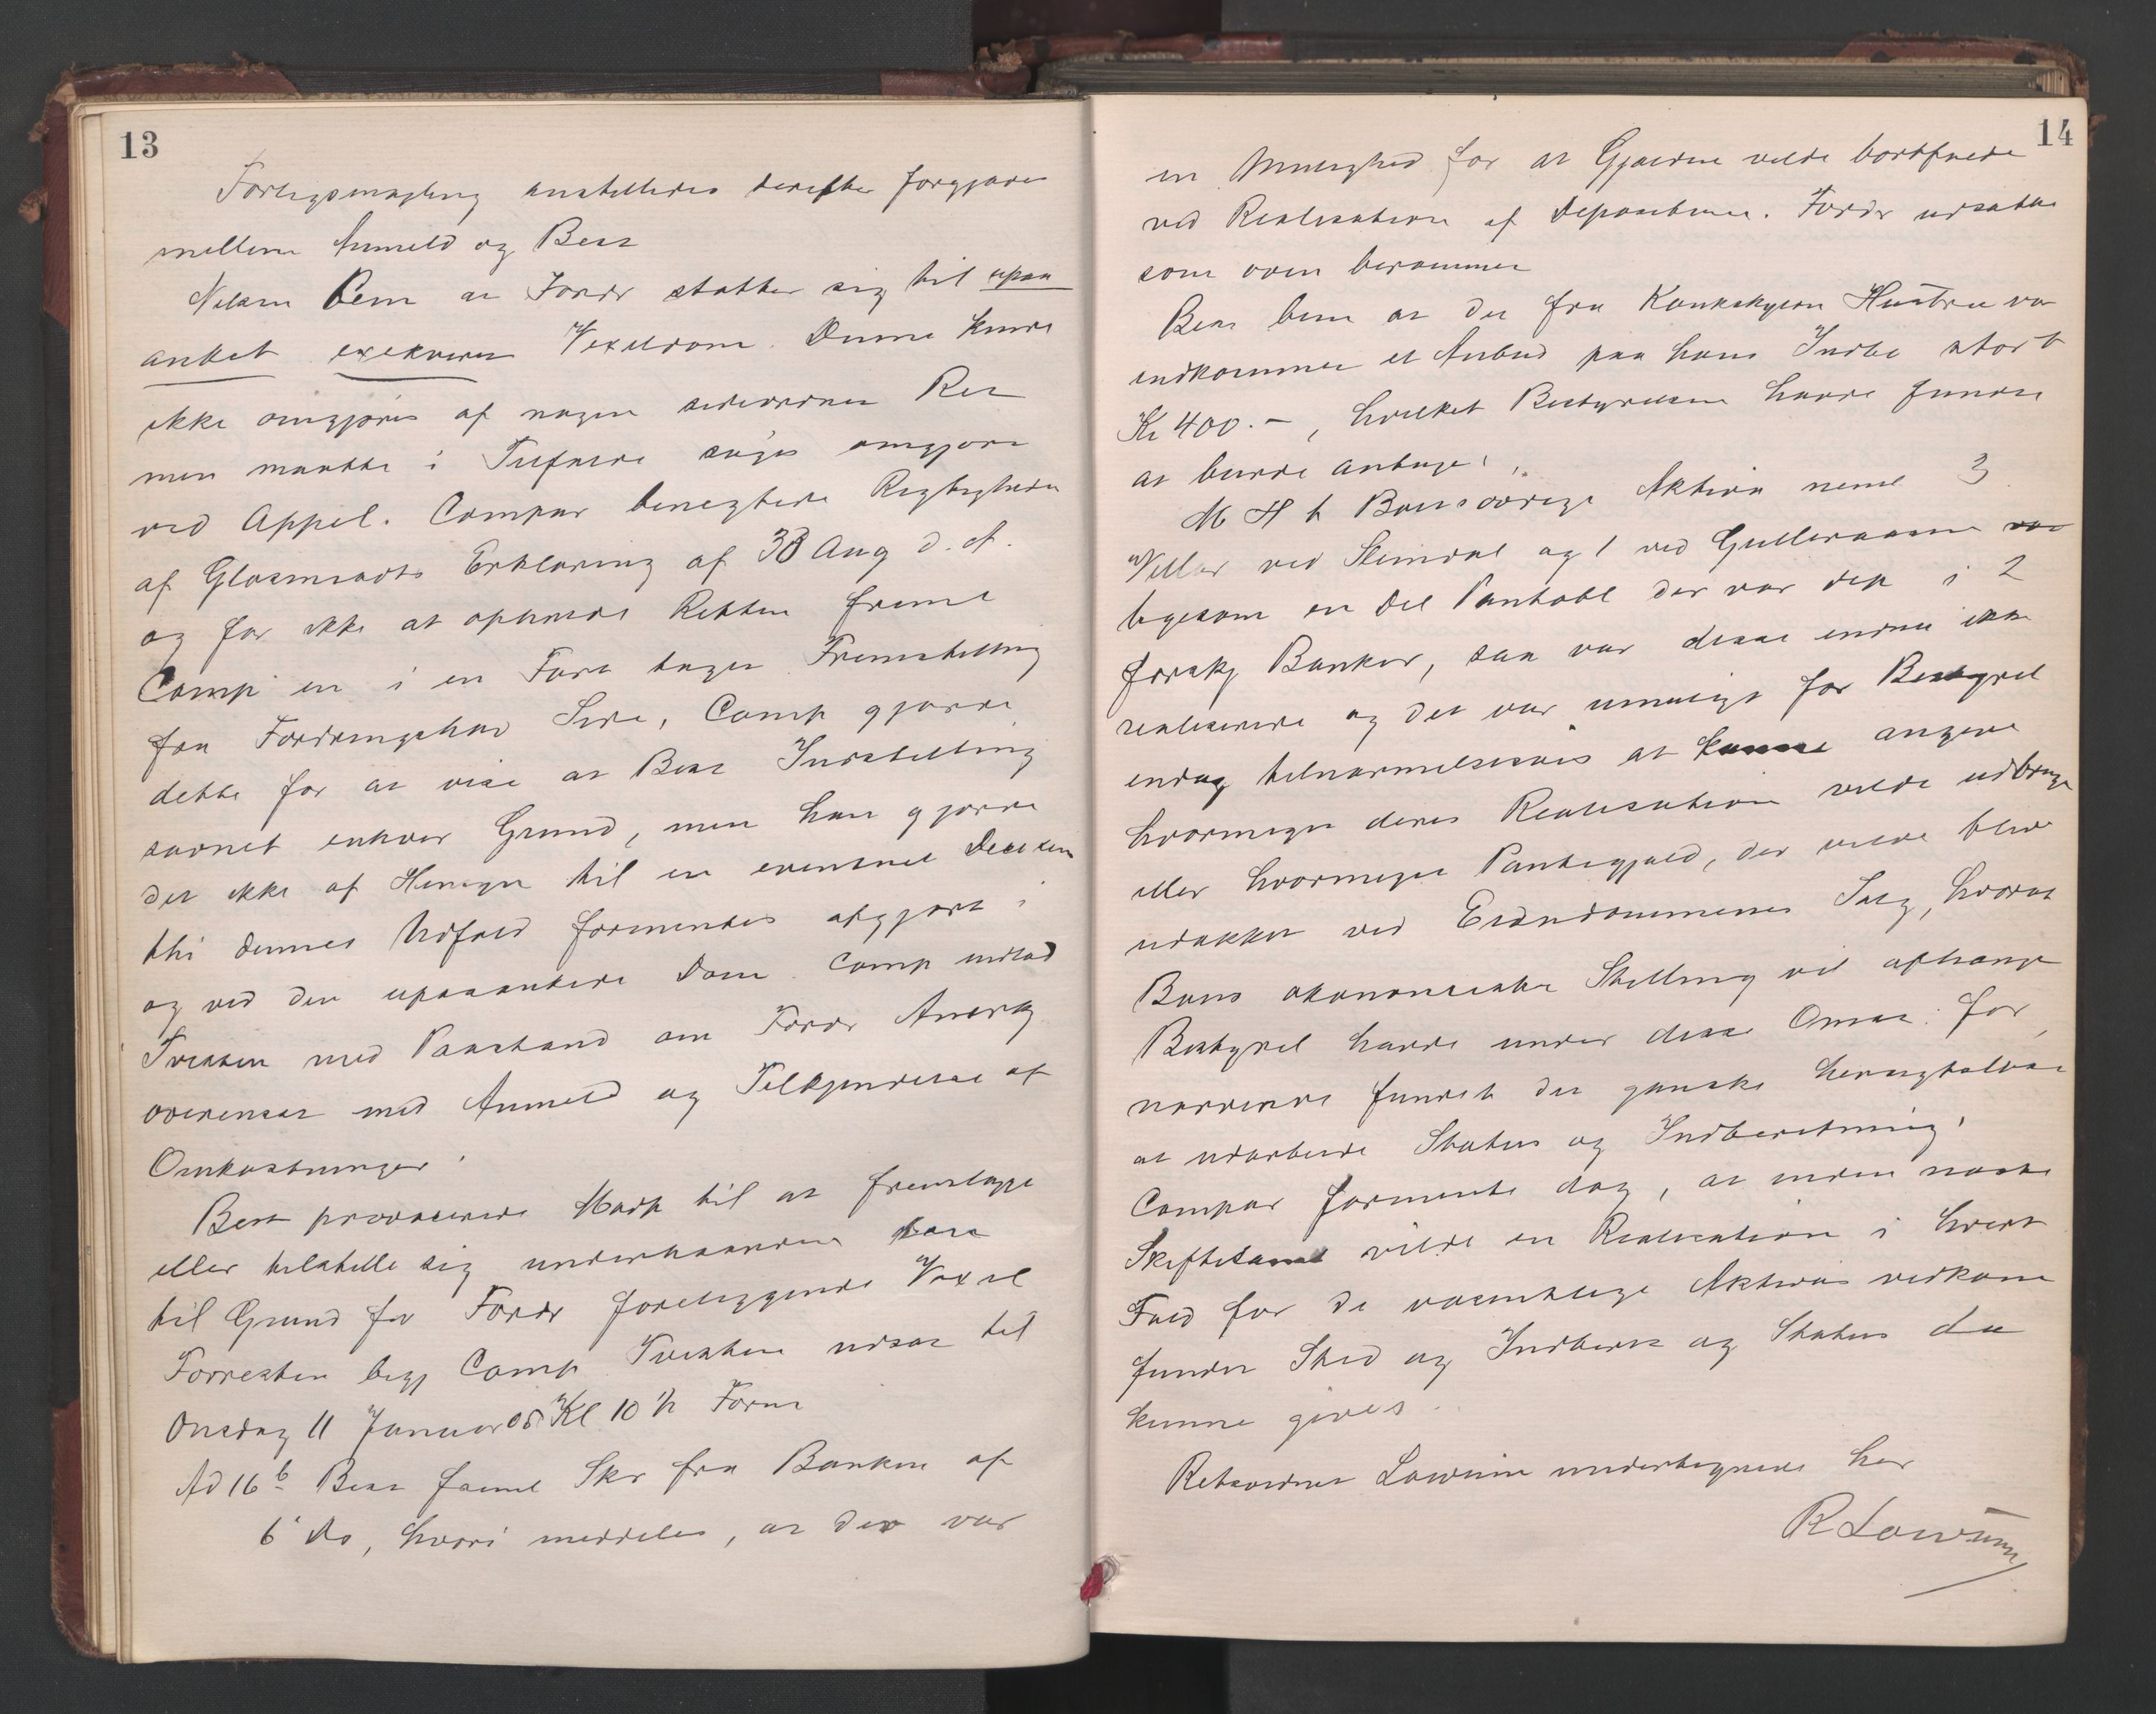 13
Forligsmægling anstilledes derefter forgjæves
mellem Anmeld og Best
Nilsen bem at Fordr støtter sig til upaa
anket exekveret Vexeldom. Denne kunde
ikke omgjøres af nogen sideordnet Ret
men maatte i Tilfælde søges omgjort
ved Appel. Compar benegtede Rigtigheden
af Glosmrods Erklæring af 30 Aug d. A.
og for ikke at opholde Retten freml
Comp en i en Fart taget Fremstilling
fra Fordringshav Side, Comp gjorde
dette for at vise at Best Indstilling
savnet enhver Grund, men han gjorde
det ikke af Hensyn til en eventuel Decision
thi dennes Udfald formentes afgjort i
og ved den upaaankede Dom. Comp indlod
Tvisten med Paastand om Fordr Anerkj
overensst med Anmeld og Tilkjendelse af
Omkostninger.
Best provocerede Modp til at fremlægge
eller tilstille sig underhaanden
til Grund for Fordr foreliggende Vexel
Forresten begj Comp Tvisten udsat til
Onsdag 11 Januar 05 Kl 10 ½ Form
Ad 16 b Best freml Skr fra Banken af
6 ds, hvori meddeles, at der var
14
en Mulighed for at Gjælden vilde bortfalde
ved Realisation af Depositumet. Fordr udsattes
som oven berammet
Best bem at der fra Konkskyldn Hustru var
indkommet et Anbud paa hans Indbo stort
Kr 400.-, hvilket Bestyrelsen havde fundet
at burde antage.
M H t Boets øvrige Aktiva neml 3
Villaer ved Slemdal og 1 ved Gulleraasen
ligesom en Del Pantobl der var dep i 2
forskj Banker, saa var disse endnu ikke
realiserede og det var umuligt for Bestyrel
endog tilnærmelsesvis at kunne angive
hvormeget deres Realisation vilde udbringe
eller hvormeget Pantegjæld, der vilde blive
udækket ved Eiendommenes Salg, hvoraf
Boets økonomiske Stilling vil afhænge
Bestyrel havde under disse Omst. for
nærværende fundet det ganske hensigtsløst
at udarbeide Status og Indberetning.
Compar formente dog, at inden næste
Skiftesaml vilde en Realisation i hvert
Fald for de væsentlige Aktivas vedkom
funden Sted og Indberet og Status da
kunne gives.
Retsvidnet Lowum undertegnede her
R Lowum